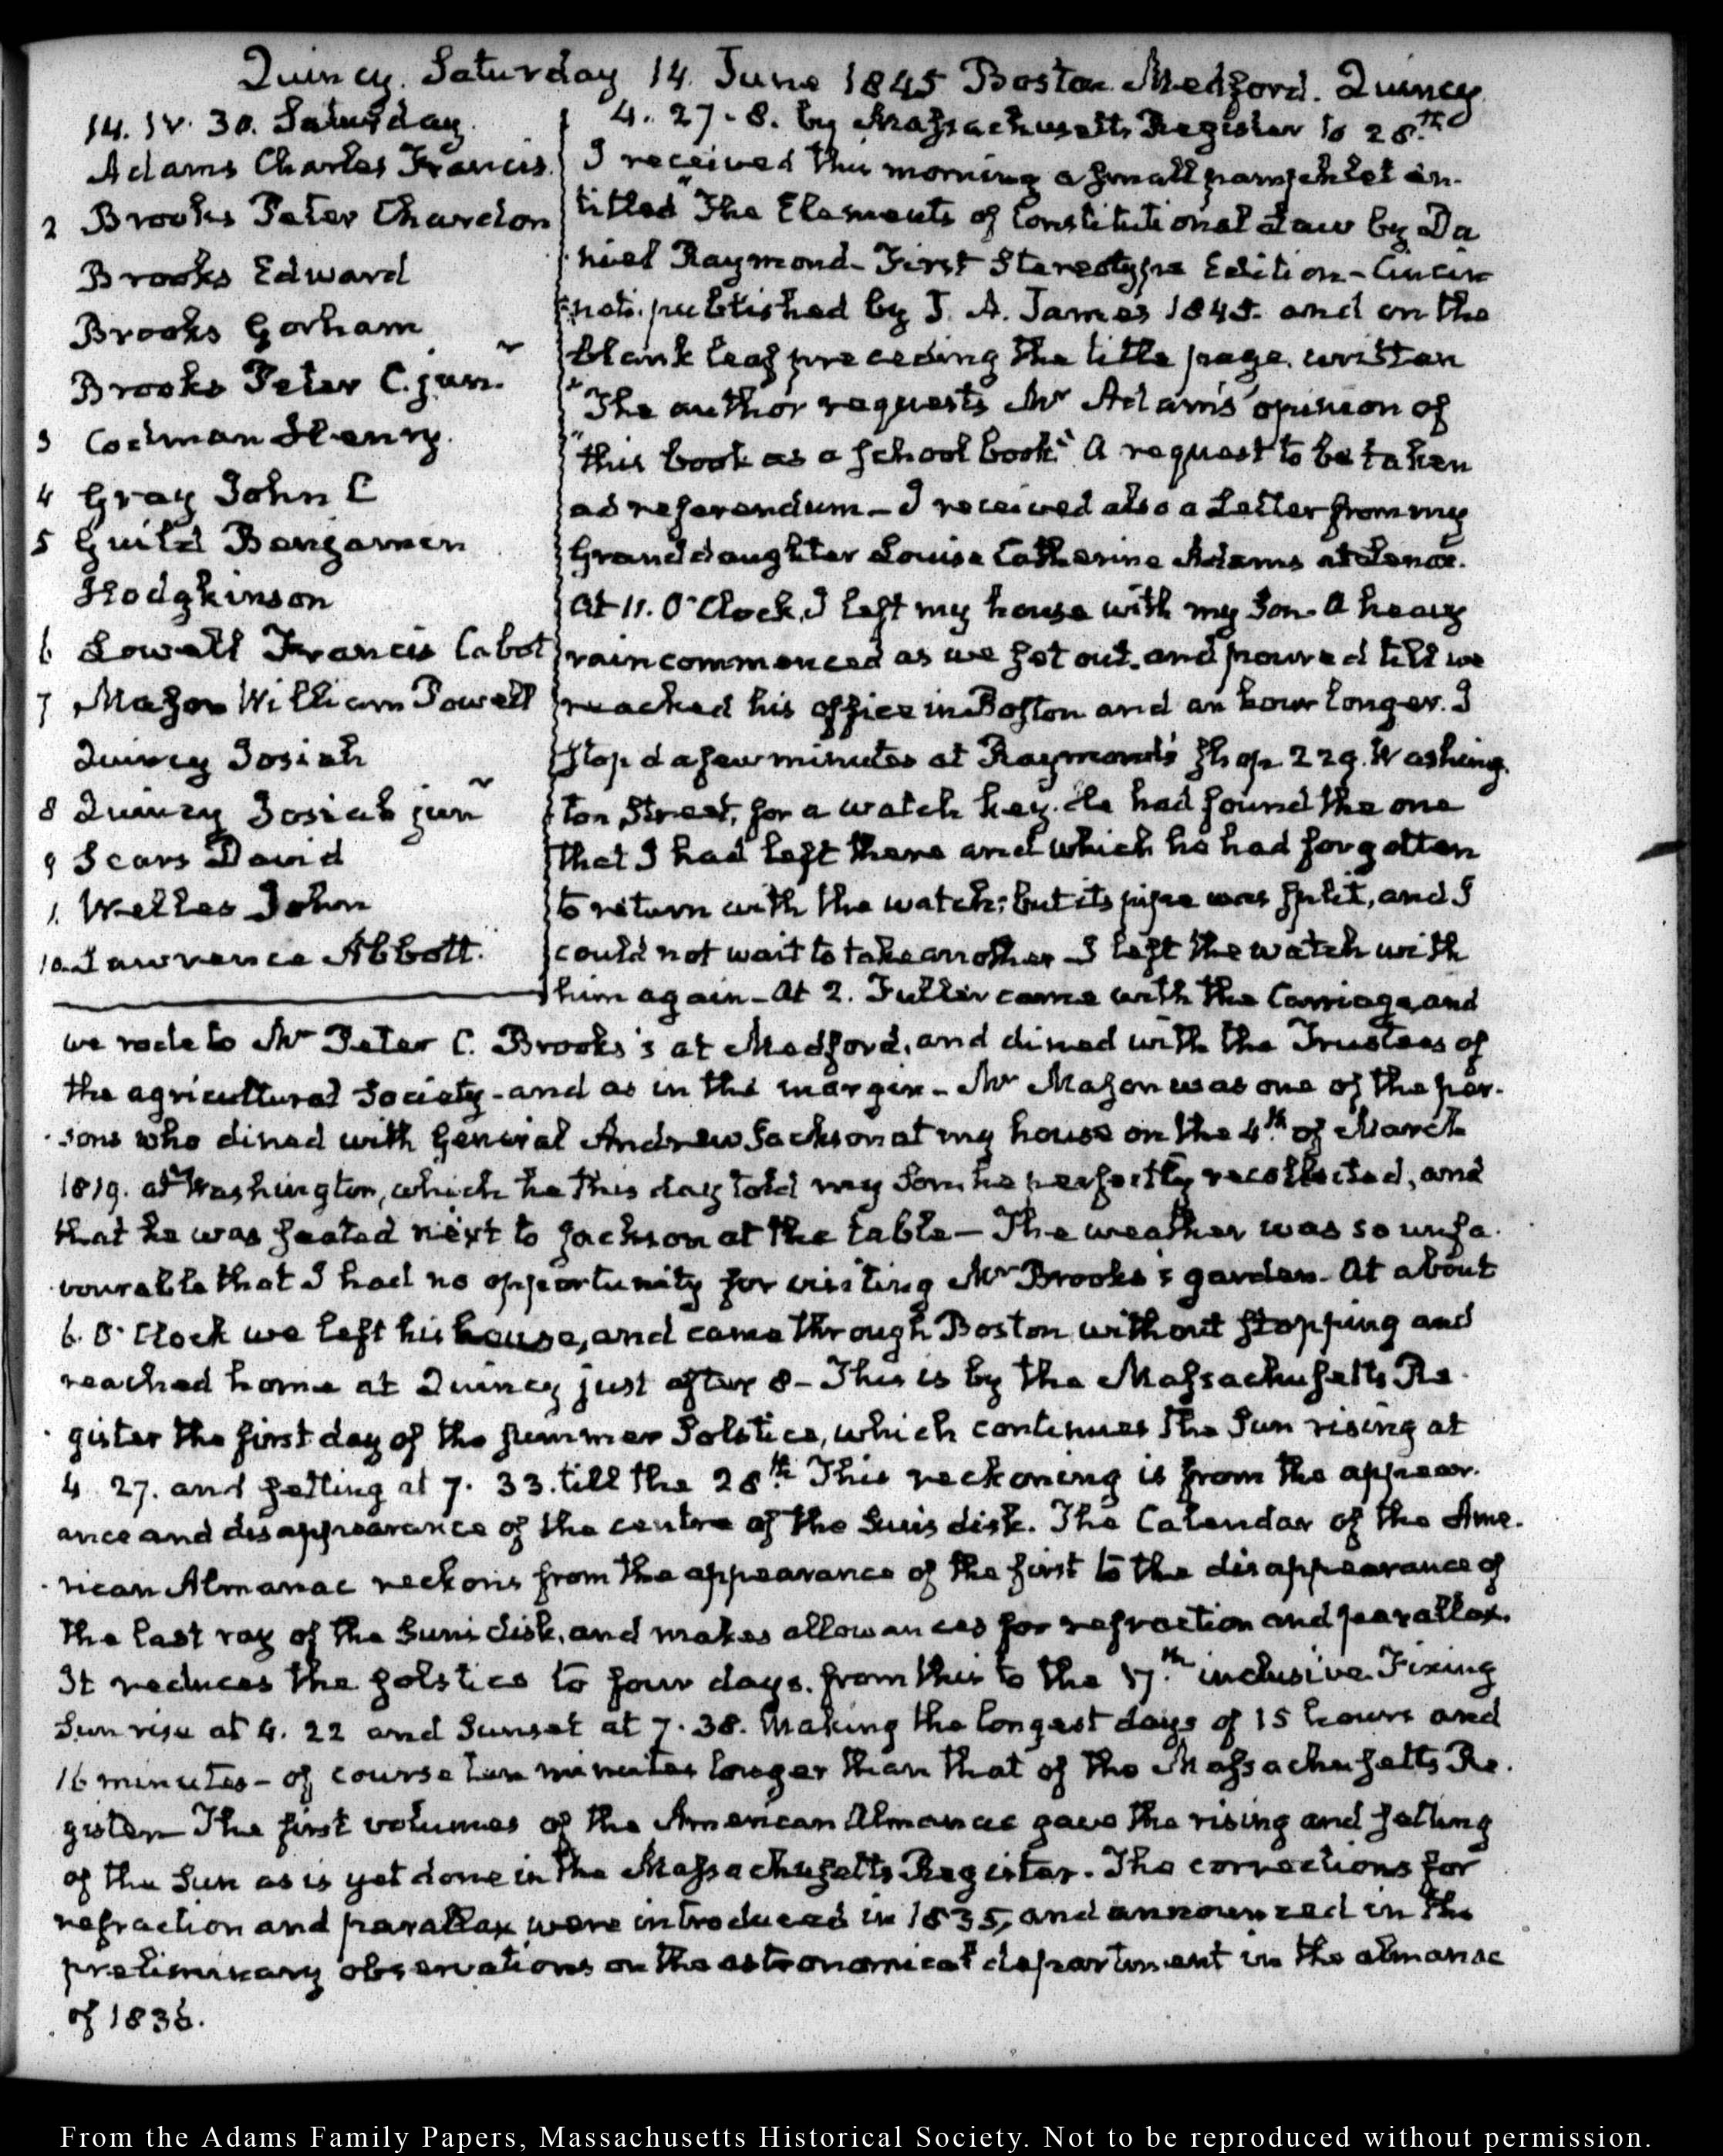 Quincy. Saturday 14. June 1845 Boston. Medford. Quincy
14. IV. 30. Saturday.
Adams Charles Francis.
2 Brooks Peter Chardon
Brooks Edward
Brooks Gorham
Brooks Peter C. junr.
3 Codman Henry.
4 Gray John C
5 Guild Benjamin
Hodgkinson
6 Lowell Francis Cabot
7 Mason William Powell
Quincy Josiah
8 Quincy Josiah junr
9 Sears David
1. Welles John
10. Lawrence Abbott.
4. 27.-8. by Massachusetts Register to 28.th
I received this morning a small pamphlet in-
titled "The Elements of Constitutional Law by Da
-niel Raymond- First Stereotype Edition- Cincin
nati. published by J. A. James 1845. and on the
blank leaf preceding the title page. written
"The author requests Mr Adams' opinion of
"this book as a school book" A request to be taken
ad referendum- I received also a Letter from my
Granddaughter Louisa Catherine Adams at Lenox.
At 11. O'Clock, I left my house with my Son- A heavy
rain commenced as we set out. and poured till we
reached his office in Boston and an hour longer. I
stop'd a few minutes at Raymond's shop 229. Washing-
ton Street, for a watch key. He had found the one
that I had left there and which he had forgotten
to return with the watch; but its pipe was split, and I
could not wait to take another- I left the watch with
him again- At 2. Fuller came with the Carriage, and
we rode to Mr Peter C. Brooks's at Medford, and dined with the Trustees of
the agricultural Society- and as in the margin- Mr Mason was one of the per-
-sons who dined with General Andrew Jackson at my house on the 4th of March
1819. at Washington, which he this day told my Son, he perfectly recollected, and
that he was seated next to Jackson at the table- The weather was so unfa-
-vourable that I had no opportunity for visiting Mr Brooks's garden- At about
6. O'Clock we left his house, and came through Boston without stopping and
reached home at Quincy just after 8- This is by the Massachusetts Re-
-gister the first day of the summer Solstice, which continues the Sun rising at
4 27. and setting at 7. 33. till the 28th. This reckoning is from the appear-
ance and disappearance of the centre of the Sun's disk. The Calendar of the Ame-
-rican Almanac reckons from the appearance of the first to the disappearance of
the last ray of the Sun's disk, and makes allowances for refraction and parallax.
It reduces the solstice to four days. from this to the 17.th inclusive. Fixing
Sun rise at 4. 22 and Sunset at 7. 38. Making the longest days of 15 hours and
16 minutes- of course ten minutes longer than that of the Massachusetts Re-
gister- The first volumes of the American Almanac gave the rising and setting
of the Sun as is yet done in the Massachusetts Register. The corrections for
refraction and parallax were introduced in 1835, and announced in the
preliminary observations on the astronomical department in the almanac
of 1836.
From the Adams Family Papers, Massachusetts Historical Society. Not to be reproduced without permission.